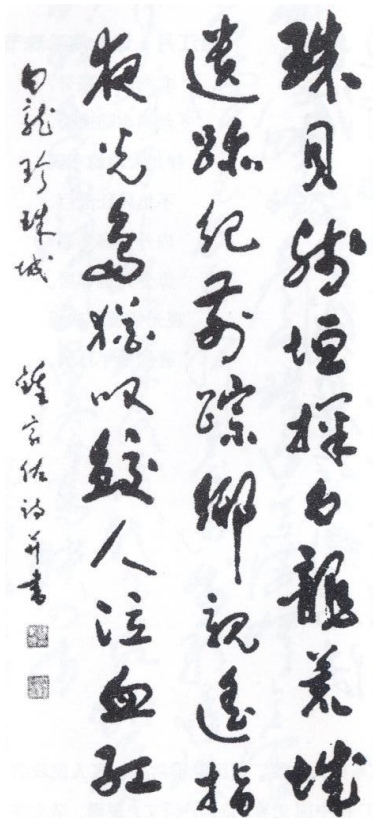 珠貝殘垣探白龍荒城
遺跡紀前踪鄉親遙指
夜光島猶叹鮫人泣血紅
白龍珍珠城 鍾家佐詩并書